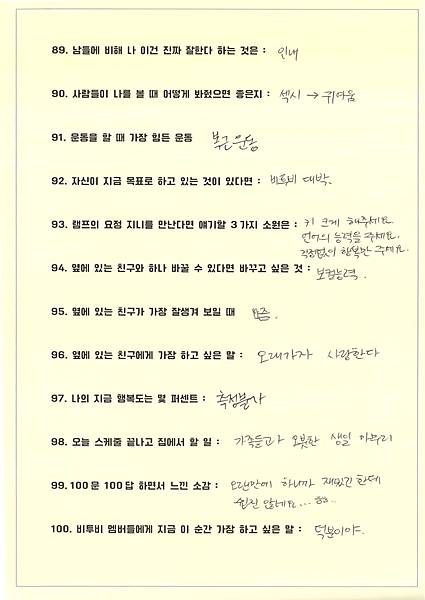 89. 남들에 비해 나 이건 진짜 잘한다 하는 것은 : 인내
90. 사람들이 나를 볼 때 어떻게 봐줬으면 좋은지 : 섹시 → 귀여움
91. 운동을 할 때 가장 힘든 운동 복근운동
92. 자신이 지금 목표로 하고 있는 것이 있다면 : 비투비 대박.
93. 램프의 요정 지니를 만난다면 얘기할 3가지 소원은 : 키 크게 해주세요.
언어의 능력을 주세요.
걱정없이 행복만 주세요.
94. 옆에 있는 친구와 하나 바꿀 수 있다면 바꾸고 싶은 것 : 보컬능력.
95. 옆에 있는 친구가 가장 잘생겨 보일 때 요즘.
96. 옆에 있는 친구에게 가장 하고 싶은 말 : 오래가자 사랑한다
97. 나의 지금 행복도는 몇 퍼센트 : 측정불가
98. 오늘 스케줄 끝나고 집에서 할 일 : 가족들과 오붓한 생일 마무리
99. 100문 100답 하면서 느낀 소감 : 오랜만에 하니까 재밌긴 한데
쉽진 않네요...
100. 비투비 멤버들에게 지금 이 순간 가장 하고 싶은 말 : 덕분이야.